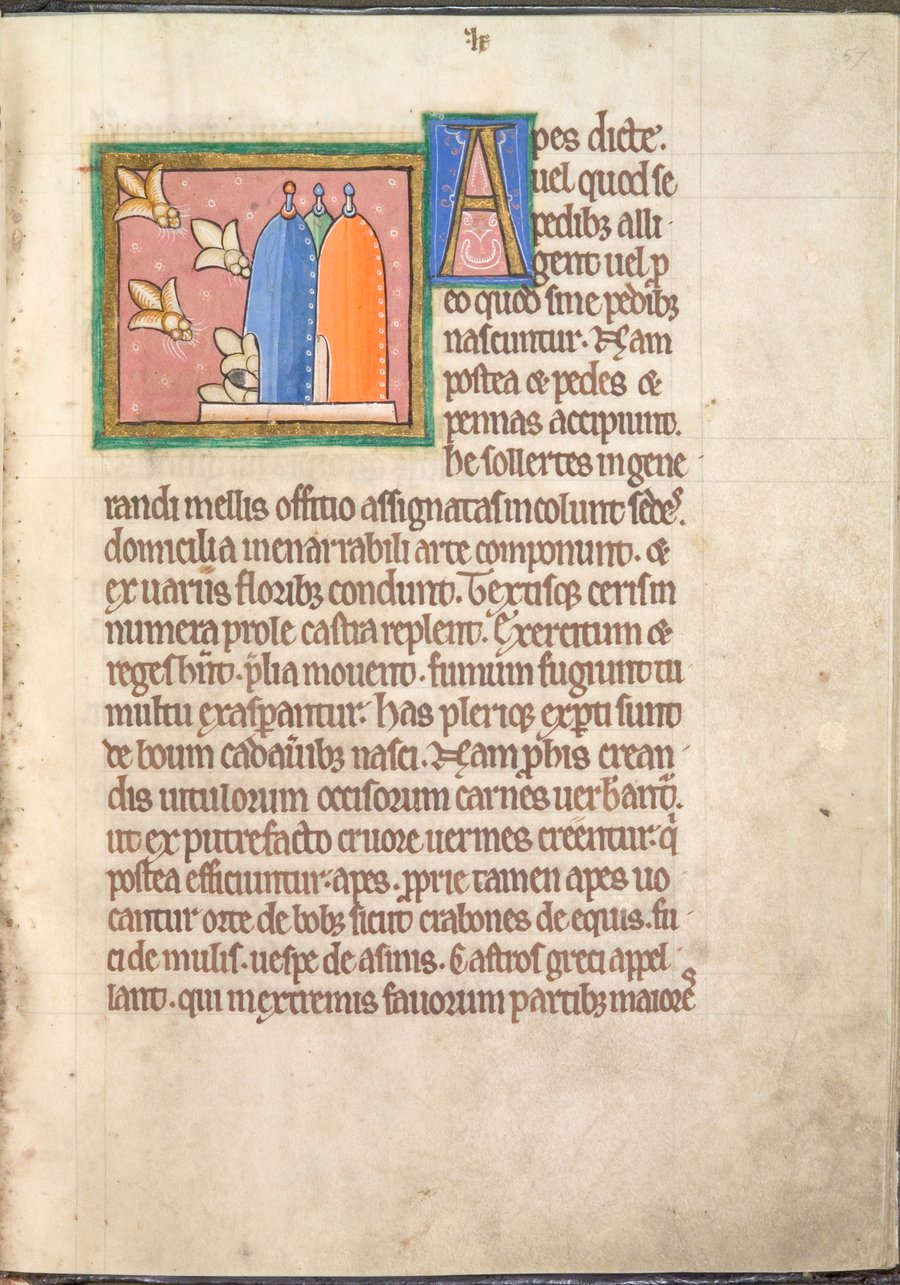 lx
57
Apes dicte.
uel quod se
pedibꝫ alli
gent uel ꝓ
eo quod sine pedibꝫ
nascuntur. Nam
postea & pedes &
pennas accipiunt.
he sollertes in gene
randi mellis offitio assignatas incolunt sedeˢ.
domicilia inenarrabili arte componunt. &
ex uariis floribꝫ condunt. Textisqꝫ ceris in
numera prole castra replent. Exercitum &
reges hn̄t. p̄lia mouent. fumum fugiunt tu
multu exasꝑantur. has pleriqꝫ exꝑti sunt
de boum cadau̾ibꝫ nasci. Nam ꝓ his crean
dis uitulorum occisorum carnes uerb̾antᷣ.
ut ex putrefacto cruore uermes creentur. qͥ
postea efficiuntur apes. ꝓprie tamen apes uo
cantur orte de bobꝫ sicut crabones de equis. fu
ci de mulis. uespe de asinis. Castros greci appel
lant. qui in extremis fauorum partibꝫ maioreˢ